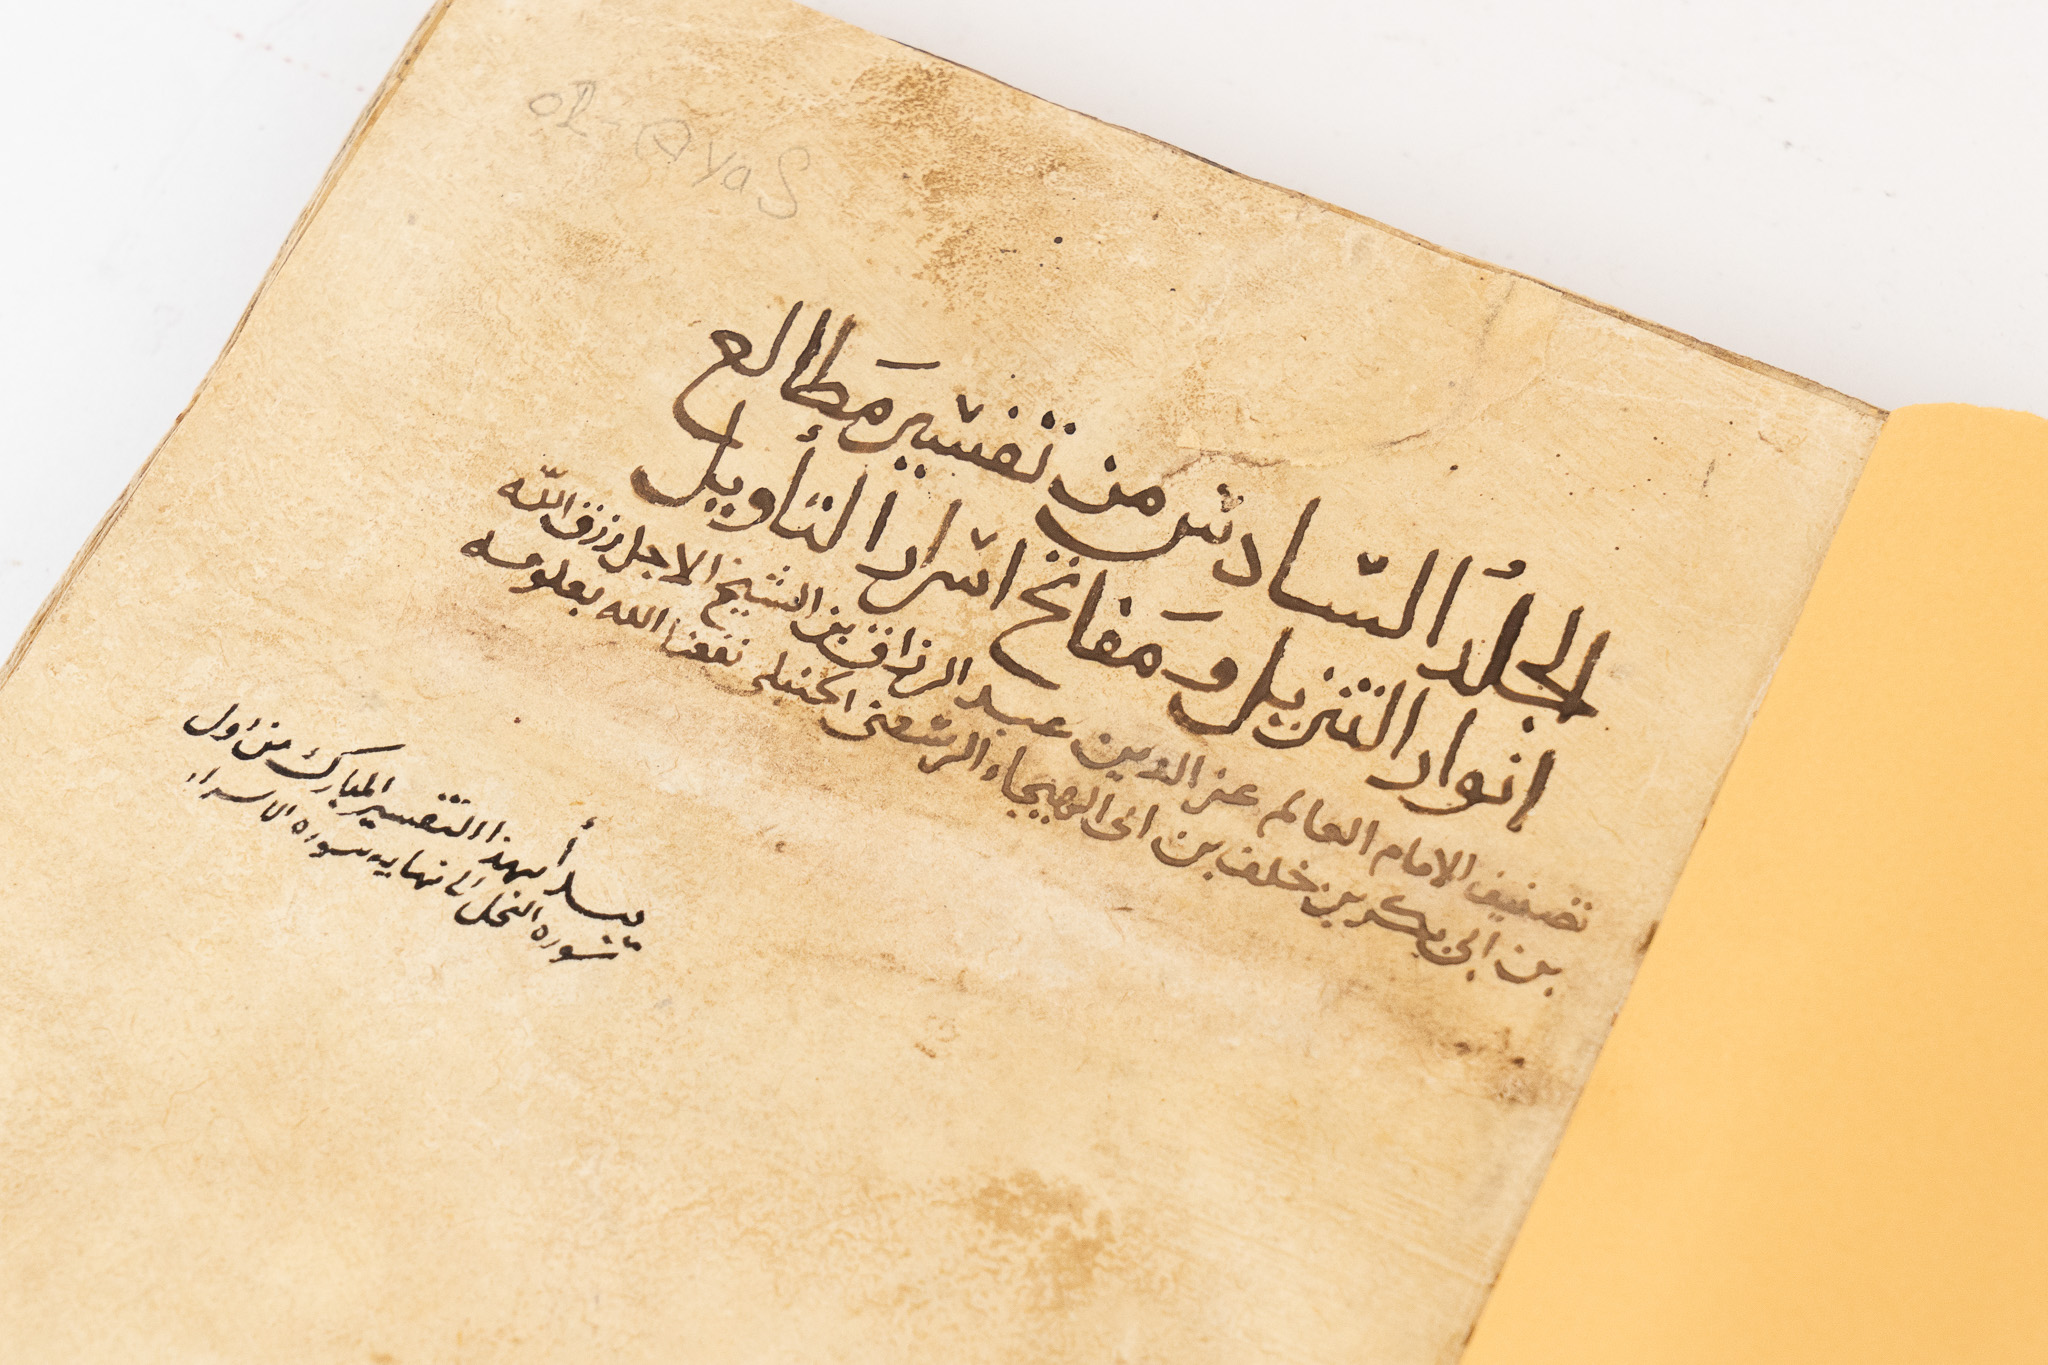 المجلدُ السّادس من تفسير مَطالع
انوار التنزيل ومَفاتح اسرار التأويل
تصنيف الامام العالم عز الدين عبد الرزاق بن الشيخ الاجل رزق الله
بن ابى بكر بن خلف بن ابى الهيجاء الرسعنى الحنبلى نفعنا الله بعلومه
يبدأ بهذا التفسير المبارك من اول
سوره النحل الى نهايه سوره الاسراء